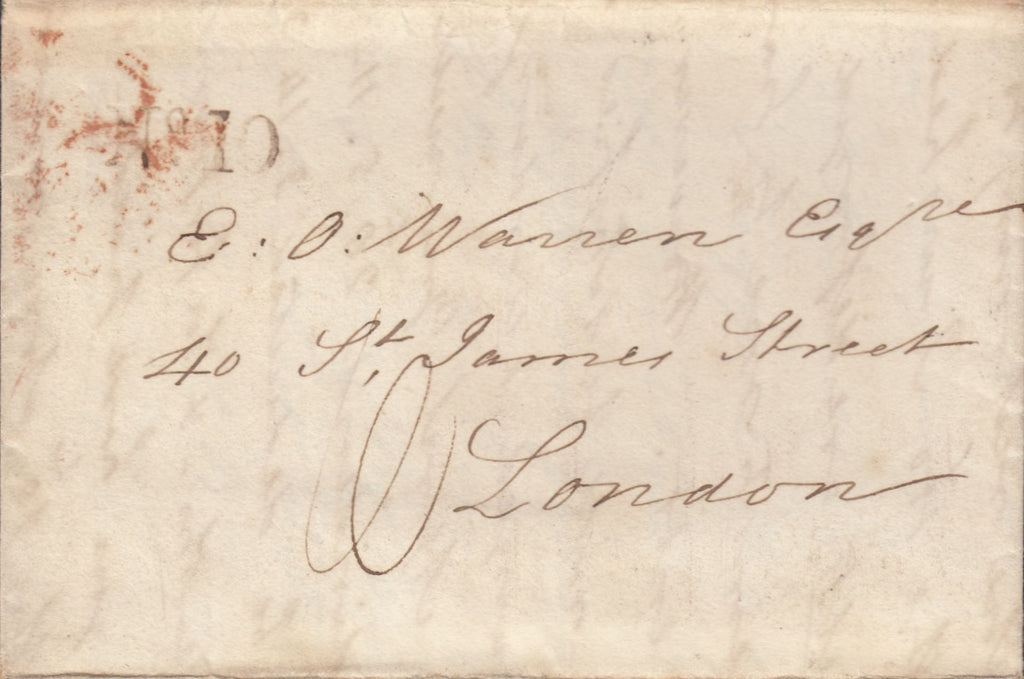 No. 10
E: O: Warren Esqre
40 St, James Street
London